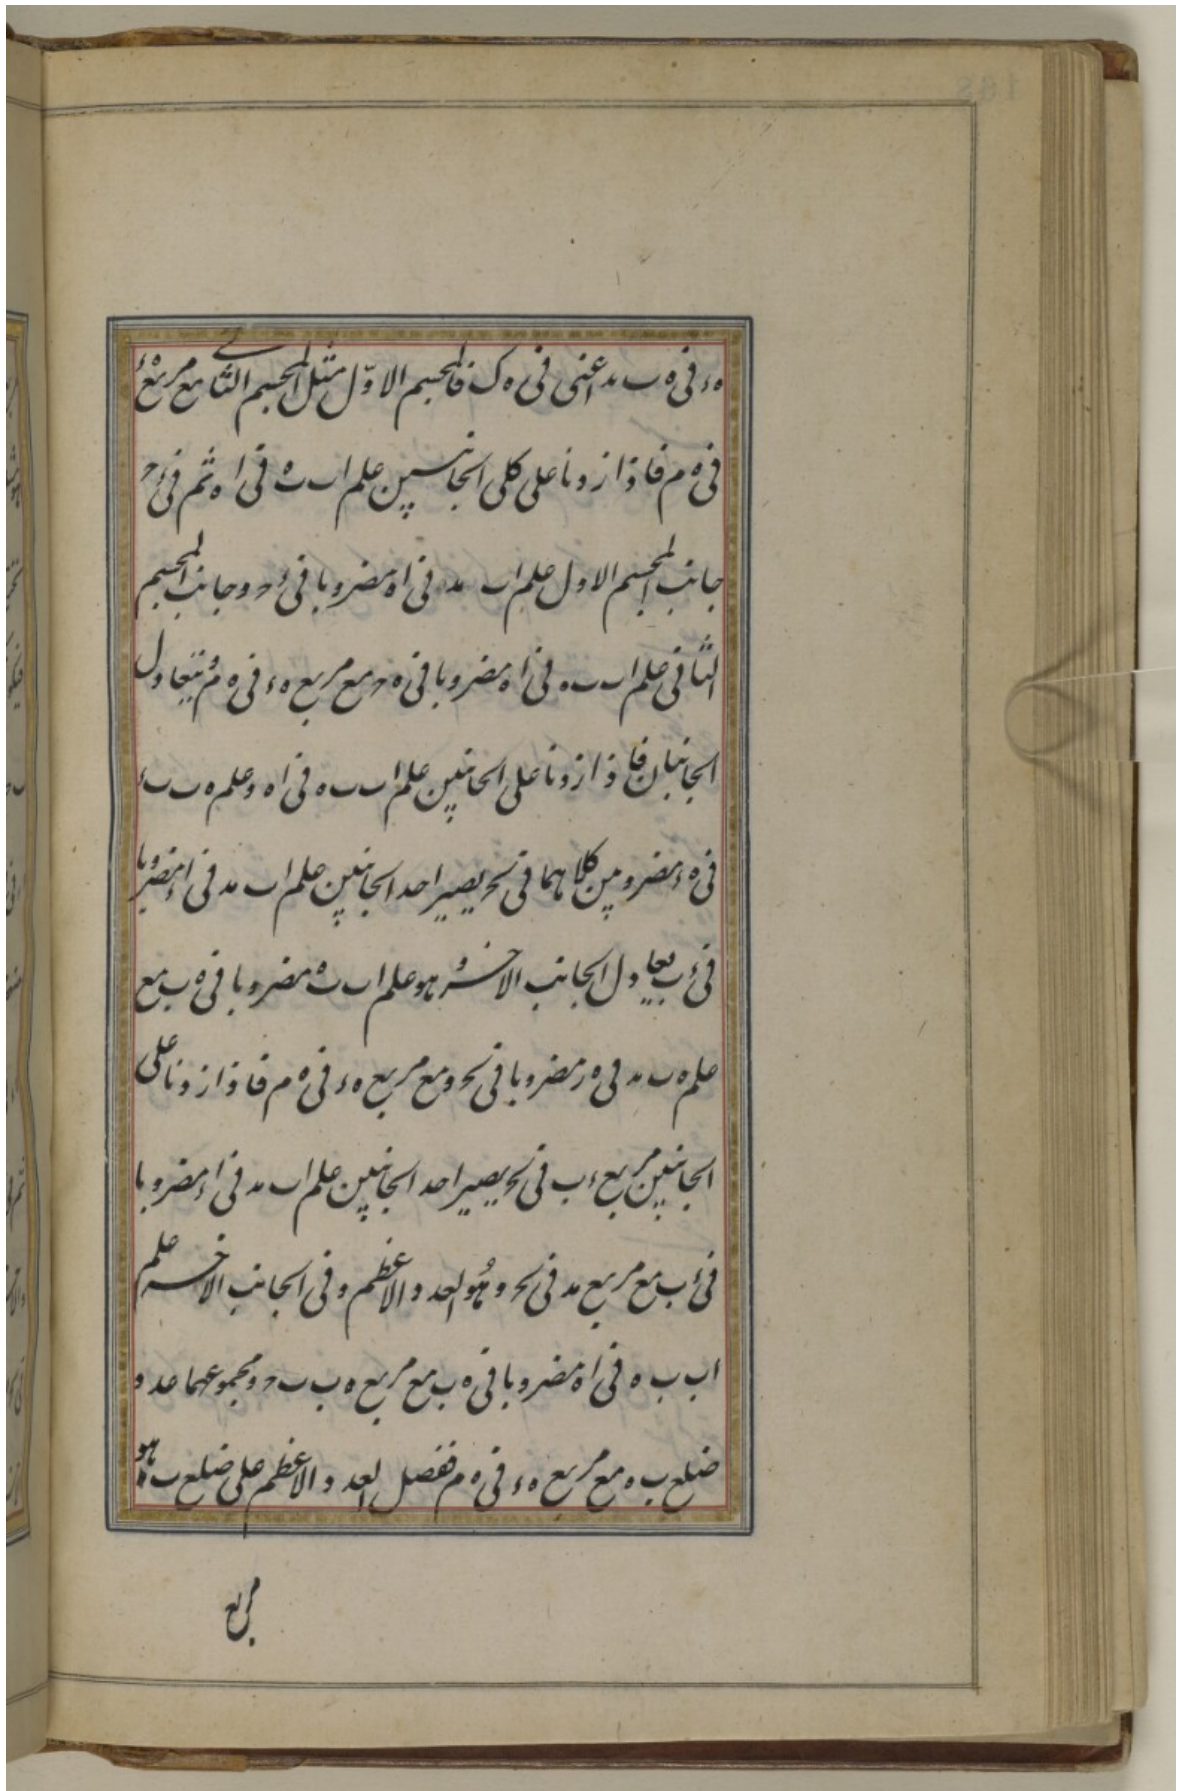 ه‍ء فی ه ب مد اعنی فی ه ک فالمجسم الاوّل مثل المجسم الثانی مع مربع ه‍ء
فی ه م فاذا زدنا علی کلی الجانبین علم اب ه فی ا ه ثم فی ء ح
جانب المجسم الاول علم اب مد فی اه مضروبا فی ء ح و جانب المجسم
الثانی علم اب ب ه فی اه مضروبا فی ه ح مع مربع ه‍ء فی ه م یتعادل
الجانبان فاذا زدنا علی الجانبین علم اب ب ه فی اه و علم ه ب ب ء
فی ه‍ء مضروبین کلاهما فی نح یصیر احد الجانبین علم اب مد فی اء مضروبا
فی ء ب یعادل الجانب الاخر و هو علم اب ه مضروبا فی ه ب مع
علم ه ب مد فی ه ر مضروبا فی نح و مع مربع ه‍ء فی ه م فاذا زدنا علی
الجانبین مربع ء ب فی نح یصیر احد الجانبین علم اب مد فی اء مضروبا
فی ء ب مع مربع مد فی نح و هو العدد الاعظم و فی الجانب الاخر علم
اب ب ه فی اه مضروبا فی ه ب مع مربع ه ب ب ح و مجموعهما عدد
ضلع ب ه مع مربع ه‍ء فی ه م ففضل العدد الاعظم علی ضلع ب ه هو
مربع